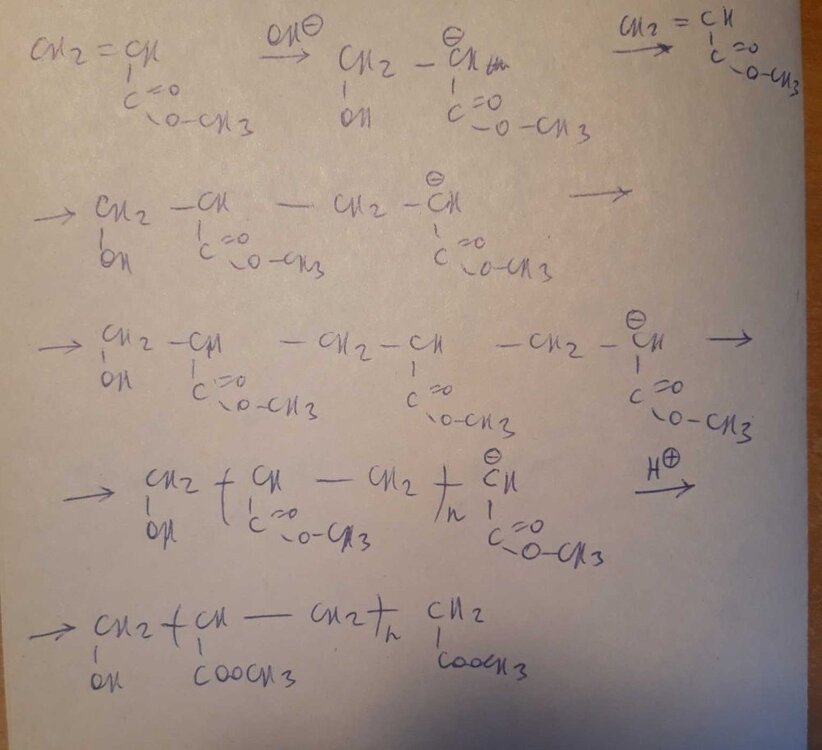 CH2 = CH OH⊖ → CH2 – ⊖CH → CH2 = CH
C=O OH C=O C=O
O–CH3 –O–CH3 –O–CH3
→ CH2 – CH — CH2 – ⊖CH →
OH C=O C=O
O–CH3 O–CH3
→ CH2 – CH – CH2 – CH – CH2 – ⊖CH →
OH C=O C=O C=O
O–CH3 O–CH3 O–CH3
→ CH2 –( CH — CH2 –)n ⊖CH H⊕ →
OH C=O C=O
O–CH3 O–CH3
→ CH2 –( CH — CH2 –)n CH2
OH COOCH3 COOCH3